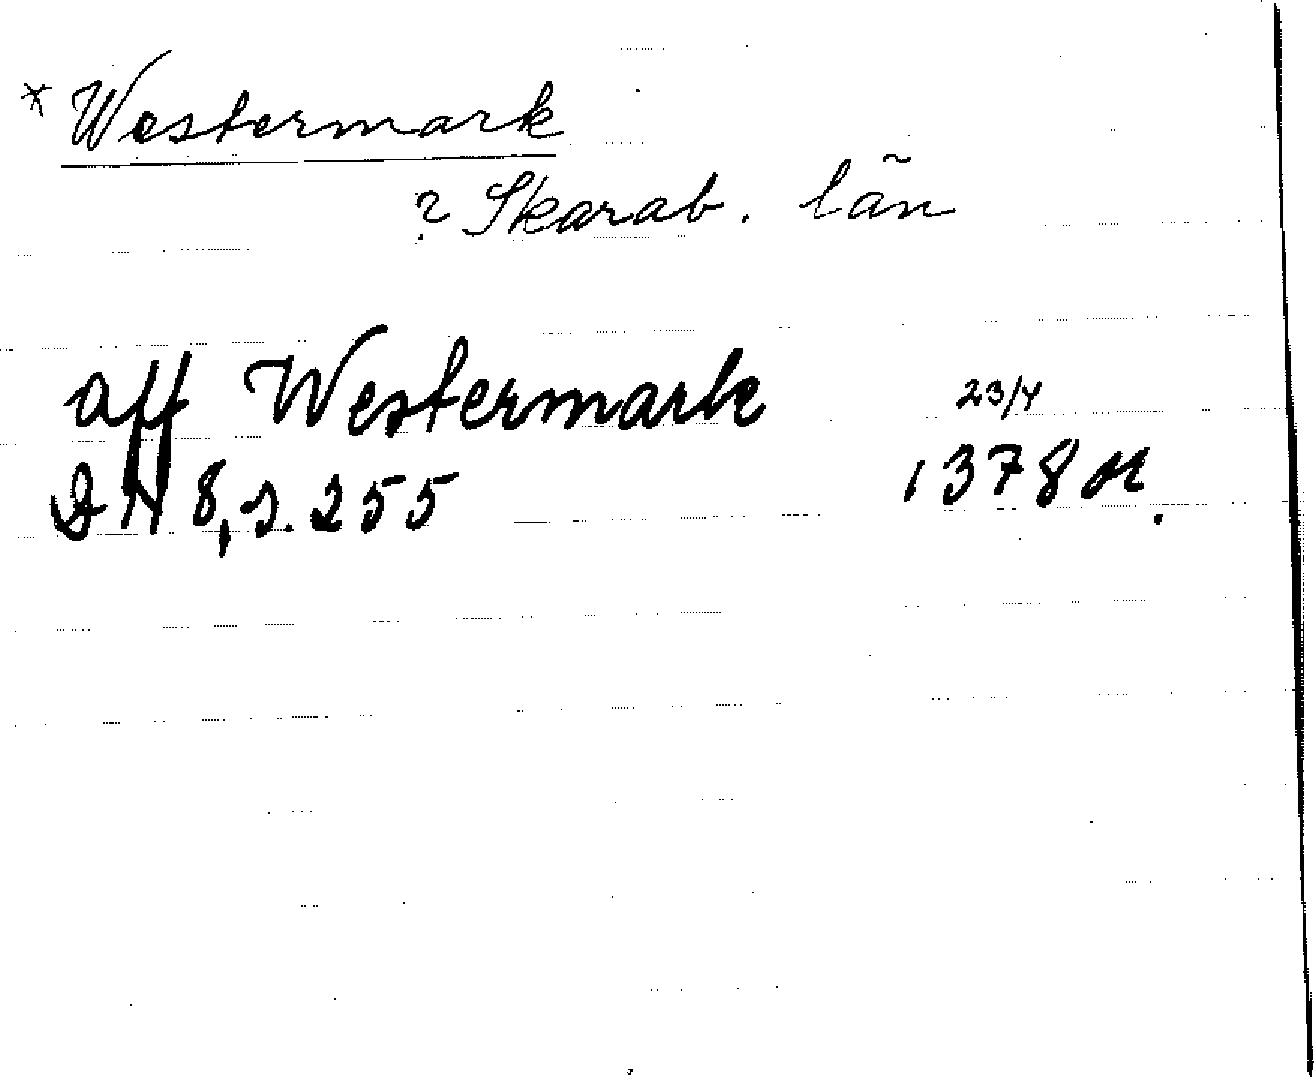 * Westermark
? Skarab. län
aff Westermark 23/4
DN 8, s. 255 1378 or.